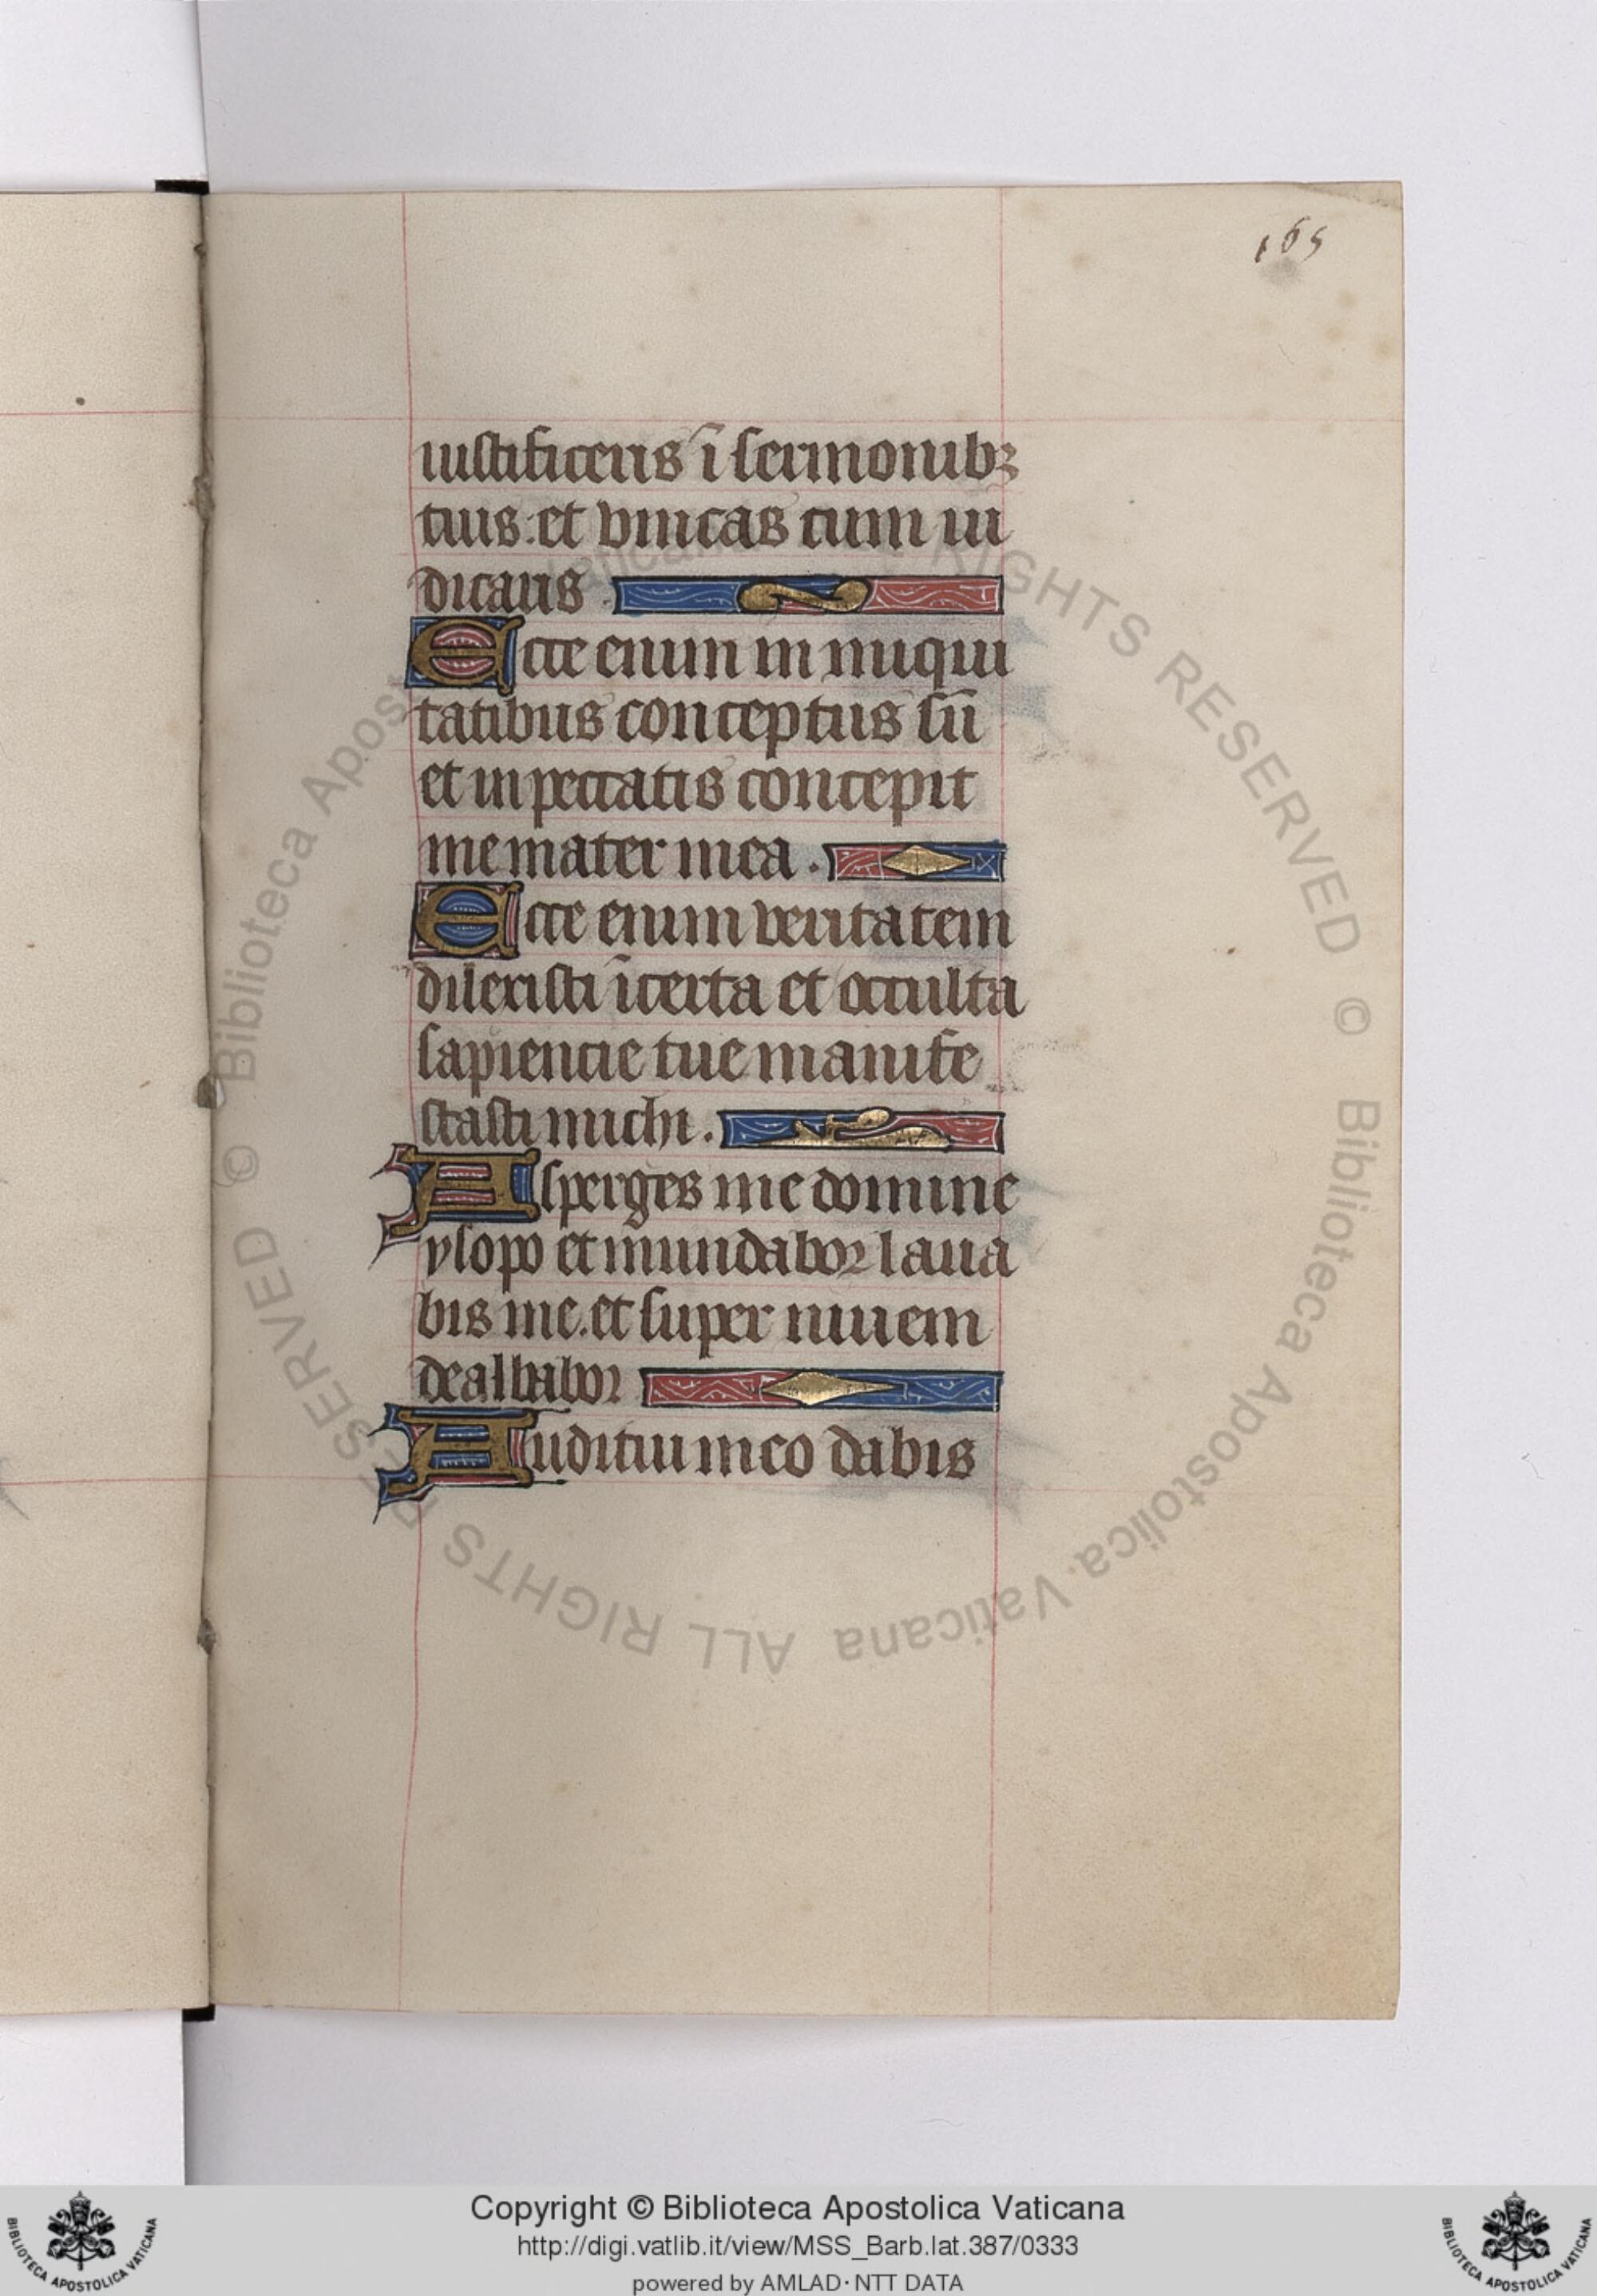 165
iustificeris ī sermonibꝫ
tuis. et vincas cum iu
dicaris .
Ecce enim in iniqui
tatibus conceptus sū
et in peccatis concepit
me mater mea .
Ecce enim veritatem
dilexisti īcerta et occulta
sapiencie tue manife
stasti michi .
Asperges me domine
ysopo et mundabor laua
bis me. et super niuem
dealbabor
Auditui meo dabis
© Biblioteca Apostolica Vaticana ALL RIGHTS RESERVED
© Biblioteca Apostolica Vaticana ALL RIGHTS RESERVED
Copyright © Biblioteca Apostolica Vaticana
http://digi.vatlib.it/view/MSS_Barb.lat.387/0333
powered by AMLAD·NTT DATA
BIBLIOTECA APOSTOLICA VATICANA
BIBLIOTECA APOSTOLICA VATICANA